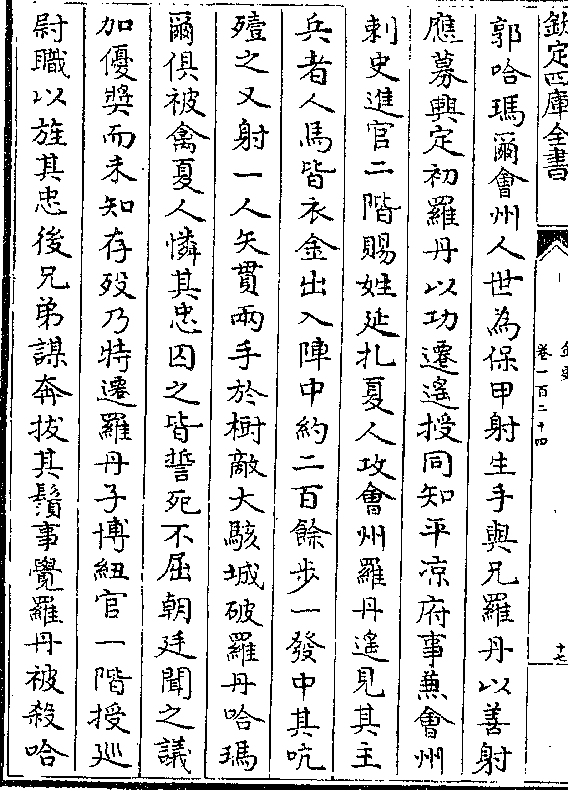 欽定四庫全書
金史
卷一百二十四
十七
郭哈瑪爾會州人世為保甲射生手與兄羅丹以善射
應募興定初羅丹以功遷遙授同知平涼府事兼會州
刺史進官二階賜姓延扎夏人攻會州羅丹遙見其主
兵者人馬皆衣金出入陣中約二百餘步一發中其吭
殪之又射一人矢貫兩手於樹敵大駭城破羅丹哈瑪
爾俱被禽夏人憐其忠囚之皆誓死不屈朝廷聞之議
加優奬而未知存歿乃特遷羅丹子博紐官一階授廵
尉職以旌其忠後兄弟謀奔拔其鬚事覺羅丹被殺哈